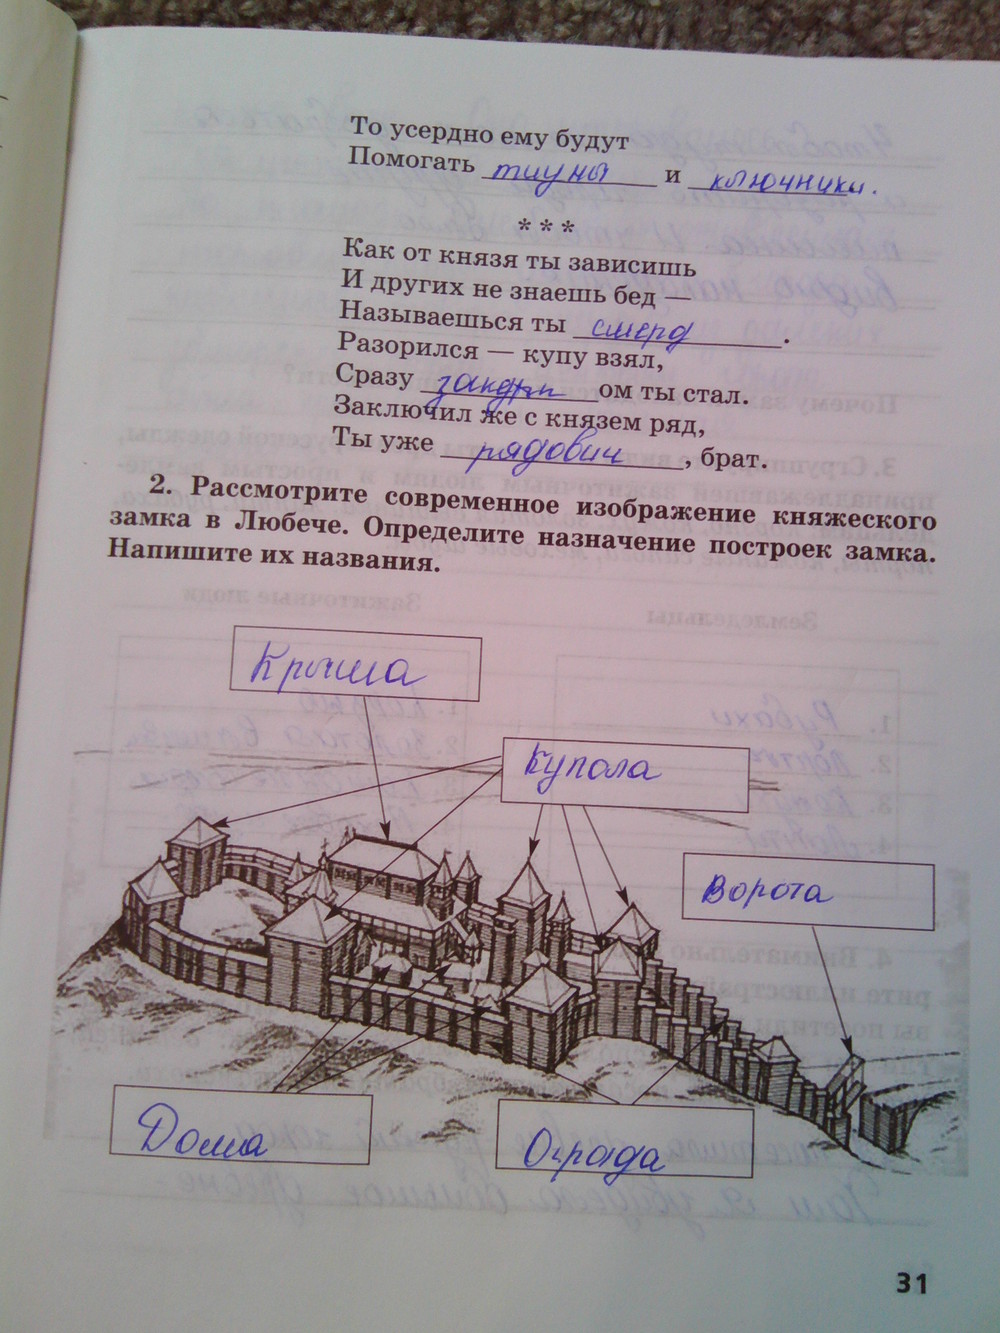 То усердно ему будут
Помогать тиуны и ключники.
* * *
Как от князя ты зависишь
И других не знаешь бед —
Называешься ты смерд.
Разорился — купу взял,
Сразу закуп ом ты стал.
Заключил же с князем ряд,
Ты уже рядович, брат.
2. Рассмотрите современное изображение княжеского
замка в Любече. Определите назначение построек замка.
Напишите их названия.
Крыша
Купола
Ворота
Дома
Ограда
31